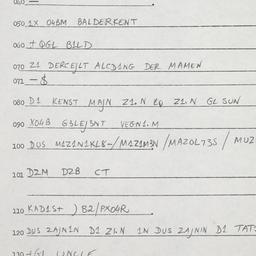 050 1X 04BM BALDERKENT
060 + QGL B1LD
070 Z1 DERCEJLT ALCD1NG DER MAMEN
071 — $
080 D1 KENST MAJN Z1.N EQ Z1.N GL SUN
090 X04B G3LEJ3NT VEGN1.M
100 DUS M1Z1N1KL8-/MAZ1M3N/MAZOL73S/MUZ
101 DZM DZB CT
110 KAD1S+ ) B2/PX04R
120 DUS ZAJN1N D1 ZLN 1N DUS ZAJN1N D1 TAT